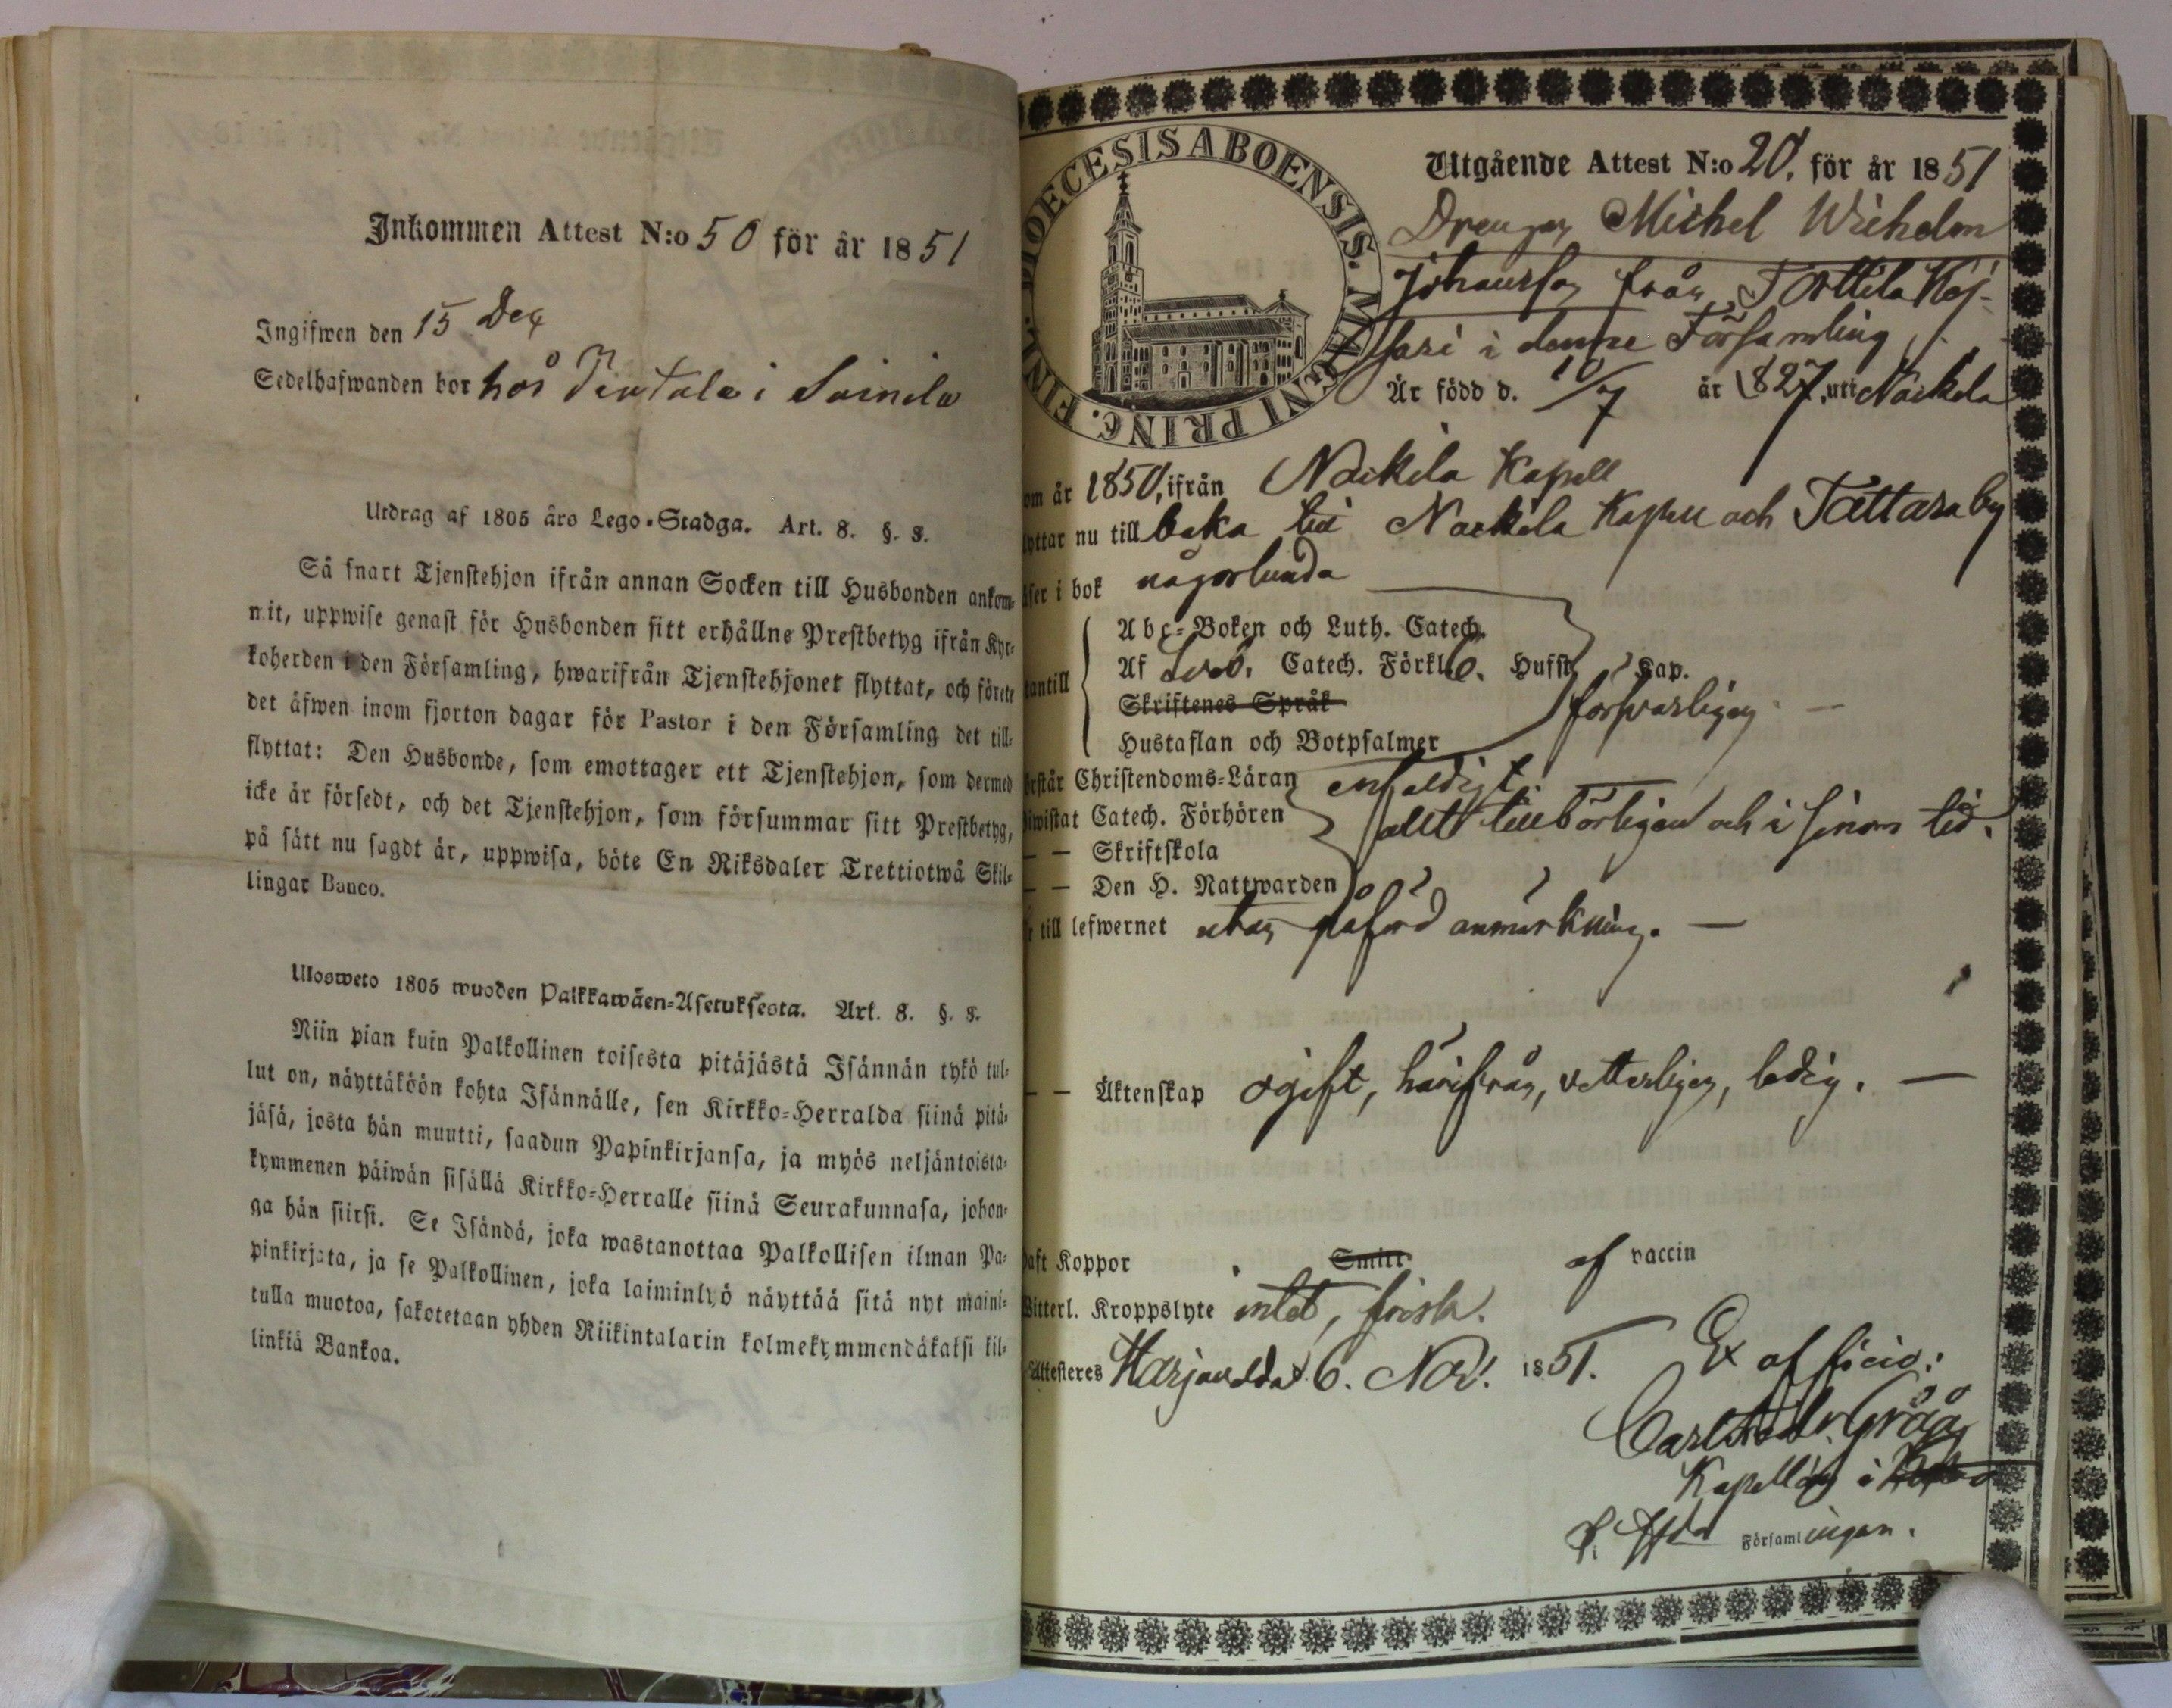 Inkommen Attest N:o 50 för år 1851
Ingifwen den 15 Dec
Sedelhafwanden bor hos i Suinila
Utdrag af 1805 års Lego-Stadga. Art. 8. §. 8.
Så snart Tjenstehjon ifrån annan Socken till Husbonden ankom-
mit, uppwise genast för Husbonden sitt erhållne Prestbetyg ifrån Kyr-
koherden i den Församling, hwarifrån Tjenstehjonet flyttat, och förete
det äfwen inom fjorton dagar för Pastor i den Församling det till-
flyttat: Den Husbonde, som emottager ett Tjenstehjon, som dermed
icke är försedt, och det Tjenstehjon, som försummar sitt Prestbetyg,
på sätt nu sagdt är, uppwisa, böte En Riksdaler Trettiotwå Skil-
lingar Banco.
Ulosweto 1805 wuoden Palkkawäen-Asetuksesta. Art. 8. §. 8.
Niin pian kuin Palkollinen toisesta pitäjästä Isännän tykö tul-
lut on, näyttäköön kohta Isännälle, sen Kirkko-Herralda siinä pitä-
jäsä, josta hän muutti, saadun Papinkirjansa, ja myös neljäntoista-
kymmenen päiwän sisällä Kirkko-Herralle siinä Seurakunnasa, johon-
ga hän siirsi. Se Isändä, joka wastanottaa Palkollisen ilman Pa-
pinkirjata, ja se Palkollinen, joka laiminlyö näyttää sitä nyt maini-
tulla muotoa, sakotetaan yhden Riikintalarin kolmekymmendäkaksi kil-
linkiä Bankoa.
DIOECESIS ABOENSIS. MAGNI PRINC. FINL.
Utgående Attest N:o 20. för år 1851
Drengen Michel Wilhelm
Johansson från Torttila Koj-
sari i denne Församling
Är född d. 10/7 år 1827, uti Nackila
om år 1850, ifrån Nackila Kapell
lyttar nu tillbaka till Nackila Kapell och Tattara by
äser i bok någorlunda
Abc-Boken och Luth. Catech.
Af Sveb. Catech. Förkl. 6. Hufst. Kap.
tantill
Skriftenes Språk
försvarligen
Hustaflan och Botpsalmer
örstår Christendoms-Läran enfaldigt.
iwistat Catech. Förhören allt tillbörligen och i sinom tid.
— — Skriftskola
— — Den H. Nattwarden
till lefwernet utan påförd anmärkning. —
— — Äktenskap ogift, härifrån, vetterligen, ledig. —
haft Koppor Smitt af vaccin
Witterl. Kroppslyte intet, frisk.
Attesteres Harjavalda d. 6. Nov. 1851. Ex officio:
Carl Gråå
Kapellan i
Församlingen.